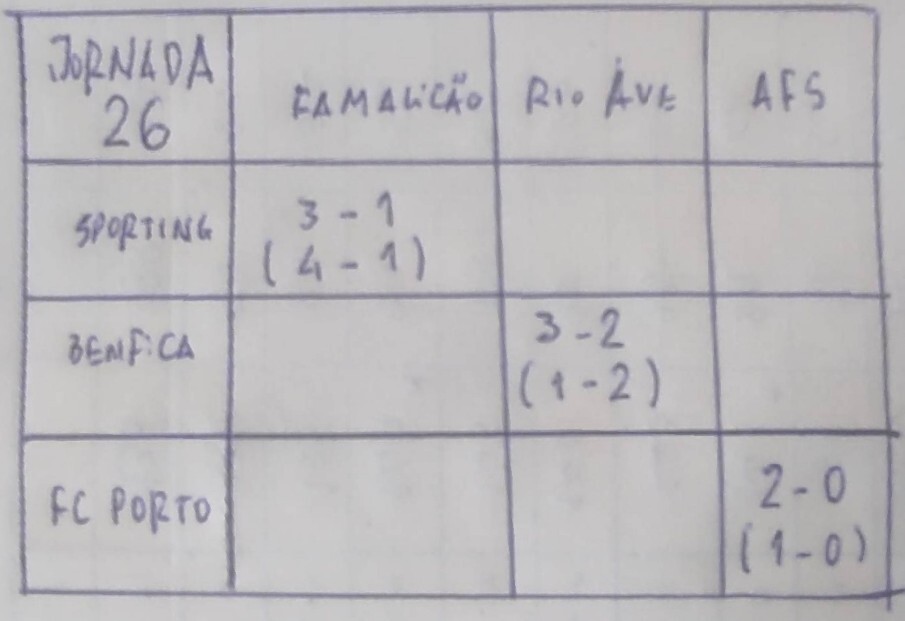 JORNADA
26
FAMALICÃO
RIO ÁVE
AFS
SPORTING
3 - 1
(4 - 1)
BENFICA
3 - 2
(1 - 2)
FC PORTO
2 - 0
(1 - 0)